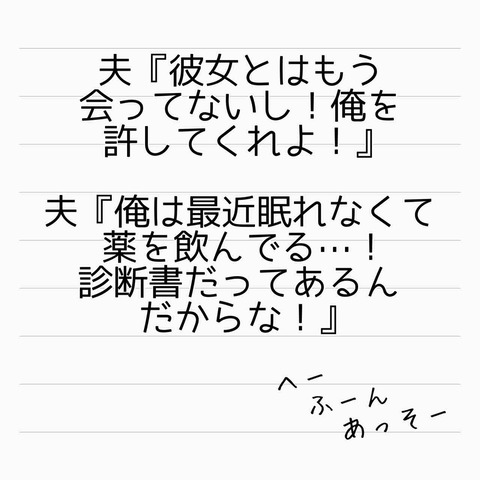 夫『彼女とはもう
会ってないし！俺を
許してくれよ！』
夫『俺は最近眠れなくて
薬を飲んでる…！
診断書だってあるん
だからな！』
へー
ふーん
あっそー